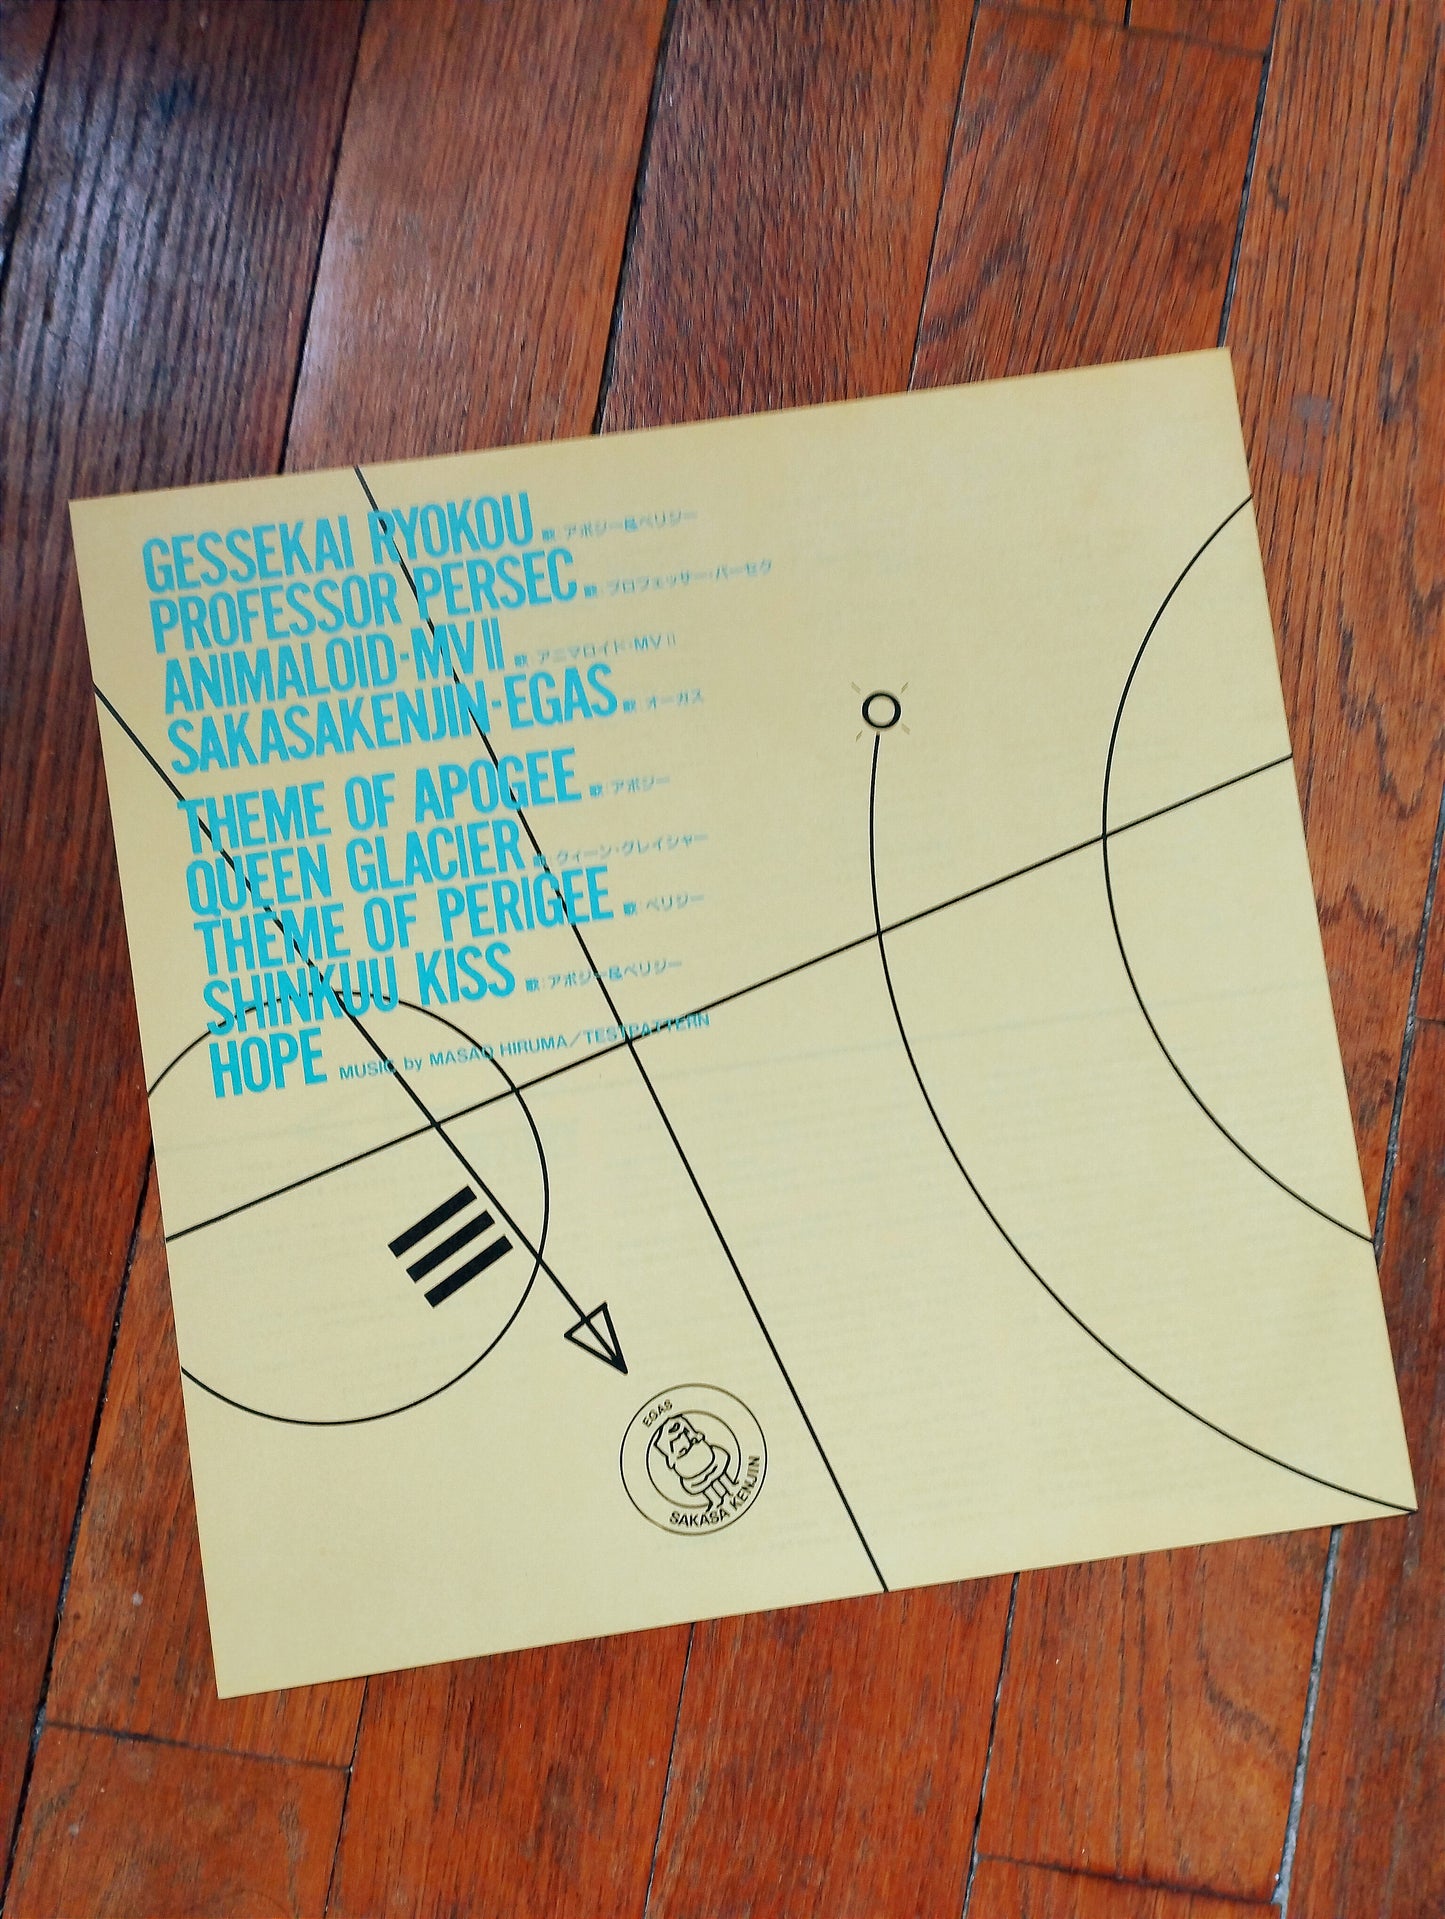 GESSEKAI RYOKOU 歌:アポジー&ペリジー
PROFESSOR PERSEC 歌:プロフェッサー・パーセク
ANIMALOID-MVII 歌:アニマロイド・MVII
SAKASAKENJIN-EGAS 歌:オーガス
THEME OF APOGEE 歌:アポジー
QUEEN GLACIER 歌:クィーン・グレイシャー
THEME OF PERIGEE 歌:ペリジー
SHINKUU KISS 歌:アポジー&ペリジー
HOPE MUSIC by MASAO HIRUMA/TESTPATTERN
EGAS
SAKASA KENJIN